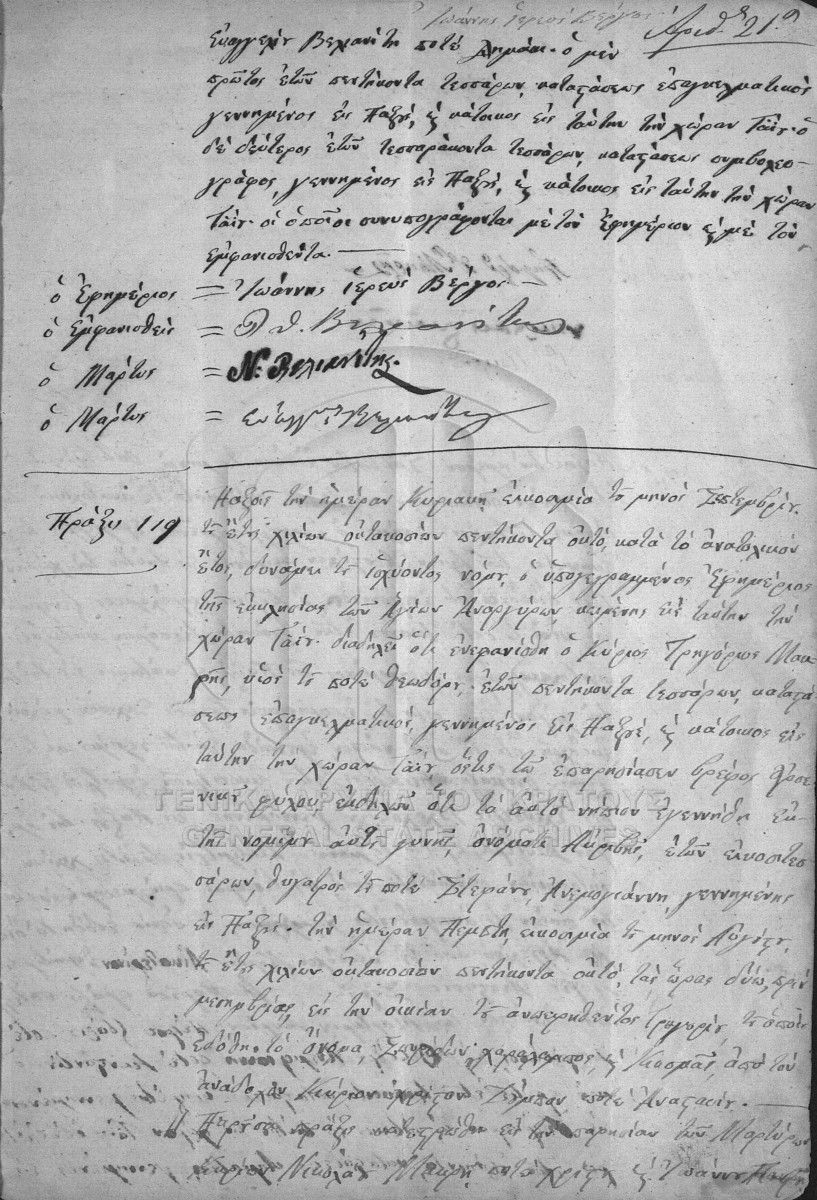 Ἰωάννης Ἱερεύς Βέργος Ἀριθ. 21.
Εὐαγγελίου Βελιανίτη ποτέ ὁ μέν
πρῶτος ἐτῶν πεντήκοντα τεσσάρων, καταστάσεως ἐπαγγελματικός
γεννημένος εἰς Παξούς, καί κάτοικος εἰς ταύτην τήν χώραν Γάϊου· ὁ
δέ δεύτερος ἐτῶν τεσσαράκοντα τεσσάρων, καταστάσεως συμβολαιο-
γράφος, γεννημένος εἰς Παξούς, καί κάτοικος εἰς ταύτην τήν χώραν
Γάϊου· οἱ ὁποῖοι συνυπογράφονται μέ τόν Ἐφημέριον καί μέ τόν
ἐμφανισθέντα.
ὁ Ἐφημέριος = Ἰωάννης Ἱερεύς Βέργος
ὁ Ἐμφανισθείς = Βελιανίτης
ὁ Μάρτυς = Ν. Βελιανίτης.
ὁ Μάρτυς = Εὐάγγ. Βελιανίτης
Πρᾶξις 119
Παξοῖς τήν ἡμέραν Κυριακή εἰκοσιμία τοῦ μηνός Σεπτεμβρίου.
τοῦ ἔτους χιλίων ὀκτακοσίων πεντήκοντα ὀκτό, κατά τό ἀνατολικόν
ἔτος, δυνάμει τοῦ ἰσχύοντος νόμου, ὁ ὑπογεγραμμένος Ἐφημέριος
τῆς ἐκκλησίας τῶν Ἁγίων Ἀναργύρων κειμένης εἰς ταύτην τήν
χώραν Γάϊου· διαδηλεῖ ὅτι ἐνεφανίσθη ὁ Κύριος Γρηγόριος Μακ-
ρῆς, υἱός τοῦ ποτέ Θεωδόρου, ἐτῶν πεντήκοντα τεσσάρων, καταστά-
σεως ἐπαγγελματικός, γεννημένος εἰς Παξούς, καί κάτοικος εἰς
ταύτην τήν χώραν Γάϊου, ὅστις τῷ ἐπαρησίασεν βρέφος ἀρσε-
νικοῦ φύλου, ἐκδηλῶν ὅτι τό αὐτό νήπιον ἐγεννήθη ἐκ
τῆς νομίμου αὐτοῦ γυνῆς, ὀνόματι Ἀκριβῆς, ἐτῶν εἰκοσιτεσ-
σάρων, θυγατρός τοῦ ποτέ Στεφάνου Ἀνεμογιάννη, γεννημένης
εἰς Παξούς· τήν ἡμέραν Πέμπτη, εἰκοσιμία τοῦ μηνός Αὐγούστου,
τοῦ ἔτους χιλίων ὀκτακοσίων πεντήκοντα ὀκτό, τάς ὥρας δύω, πρίν
μεσημβρίας, εἰς τήν οἰκίαν τοῦ Γρηγορίου τοῦ ὁποίου
ἐδόθη τό ὄνομα, Σπυρίδων, χαράλαμπος, καί Κοσμᾶς, ἀπό τόν
ἀνάδοχον Κύριον ποτέ Ἀναστασίου.
Παροῦσα πρᾶξις κατεστρώθη εἰς τήν παρησίαν τῶν Μαρτύρων
κυρίων Νικολάου Μακρῆ ποτέ χρίστου καί Ἰωάννου
ΓΕΝΙΚΑ ΑΡΧΕΙΑ ΤΟΥ ΚΡΑΤΟΥΣ
GENERAL STATE ARCHIVES